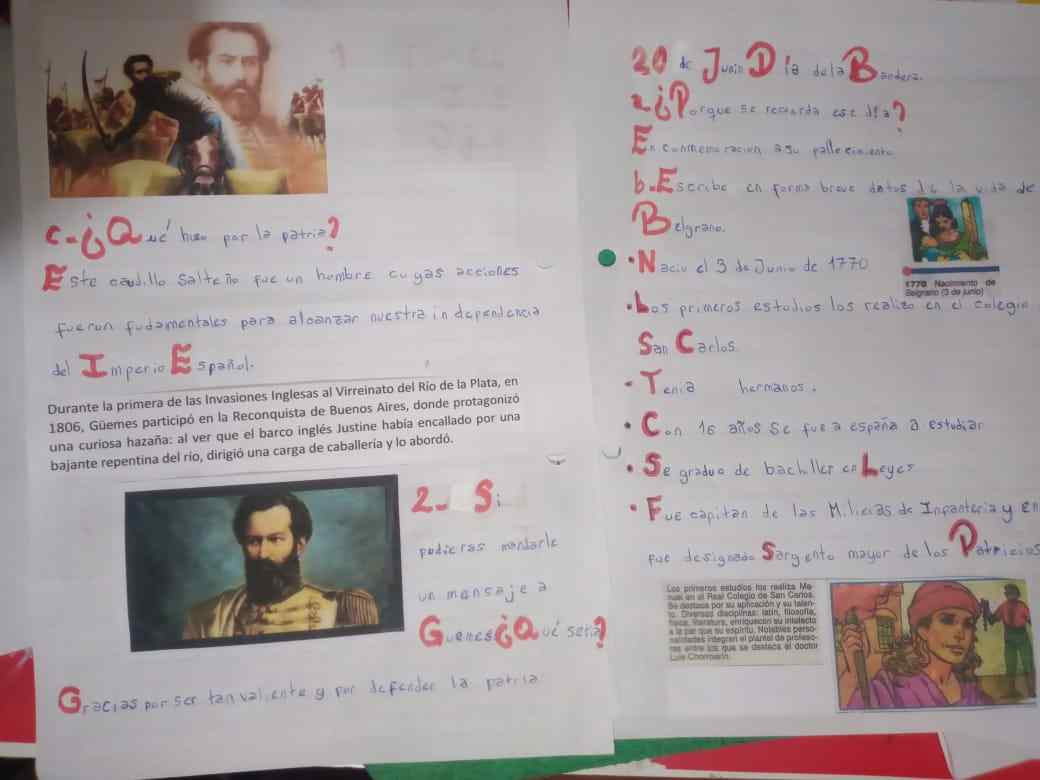 c-¿Qué hizo por la patria?
Este caudillo Salteño fue un hombre cuyas acciones
fueron fudamentales para alcanzar nuestra independencia
del Imperio Español.
Durante la primera de las Invasiones Inglesas al Virreinato del Río de la Plata, en
1806, Güemes participó en la Reconquista de Buenos Aires, donde protagonizó
una curiosa hazaña: al ver que el barco inglés Justine había encallado por una
bajante repentina del río, dirigió una carga de caballería y lo abordó.
2- Si
pudieras mandarle
un mensaje a
Guemes ¿Qué seria?
Gracias por ser tan valiente y por defender la patria
20 de Junio Día de la Bandera.
a ¿Porque se recuerda ese día?
En conmemoracion a su pallecimiento
b-Escribe en forma breve datos de la vida de
Belgrano.
• Nacio el 3 de Junio de 1770
1770 Nacimiento de
Belgrano (3 de junio)
• Los primeros estudios los realizo en el colegio
San Carlos.
• Tenia hermanos.
• Con 16 años se fue a españa a estudiar
• Se graduo de bachiller en Leyes
• Fue capitan de las Milicias de Inpanteria y en
fue designado Sargento mayor de los Patricios
Los primeros estudios los realiza Ma-
nuel en el Real Colegio de San Carlos.
Se destaca por su aplicación y su talen-
to. Diversas disciplinas: latín, filosofía,
física, literatura, enriquecen su intelecto
a la par que su espíritu. Notables perso-
nalidades integran el plantel de profeso-
res entre los que se destaca el doctor
Luis Chorroarín.